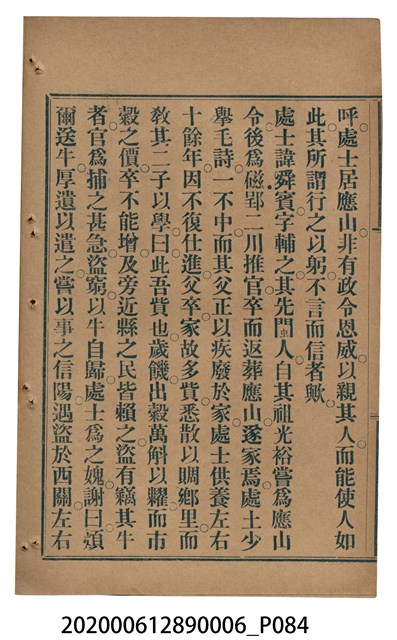 呼處士居應山非有政令恩威以親其人而能使人如
此其所謂行之以躬不言而信者歟
處士諱舜賓字輔之其先開封人自其祖光裕嘗爲應山
令後爲磁郢二川推官卒而返葬應山遂家焉處士少
舉毛詩一不中而其父正以疾廢於家處士供養左右
十餘年因不復仕進父卒家故多貲悉散以賙鄉里而
敎其二子以學曰此吾貲也歲饑出穀萬斛以糶而市
穀之價卒不能增及旁近縣之民皆賴之盜有竊其牛
者官爲捕之甚急盜窮以牛自歸處士爲之媿謝曰煩
爾送牛厚遺以遣之嘗以事之信陽遇盜於西關左右
202000612890006_P084